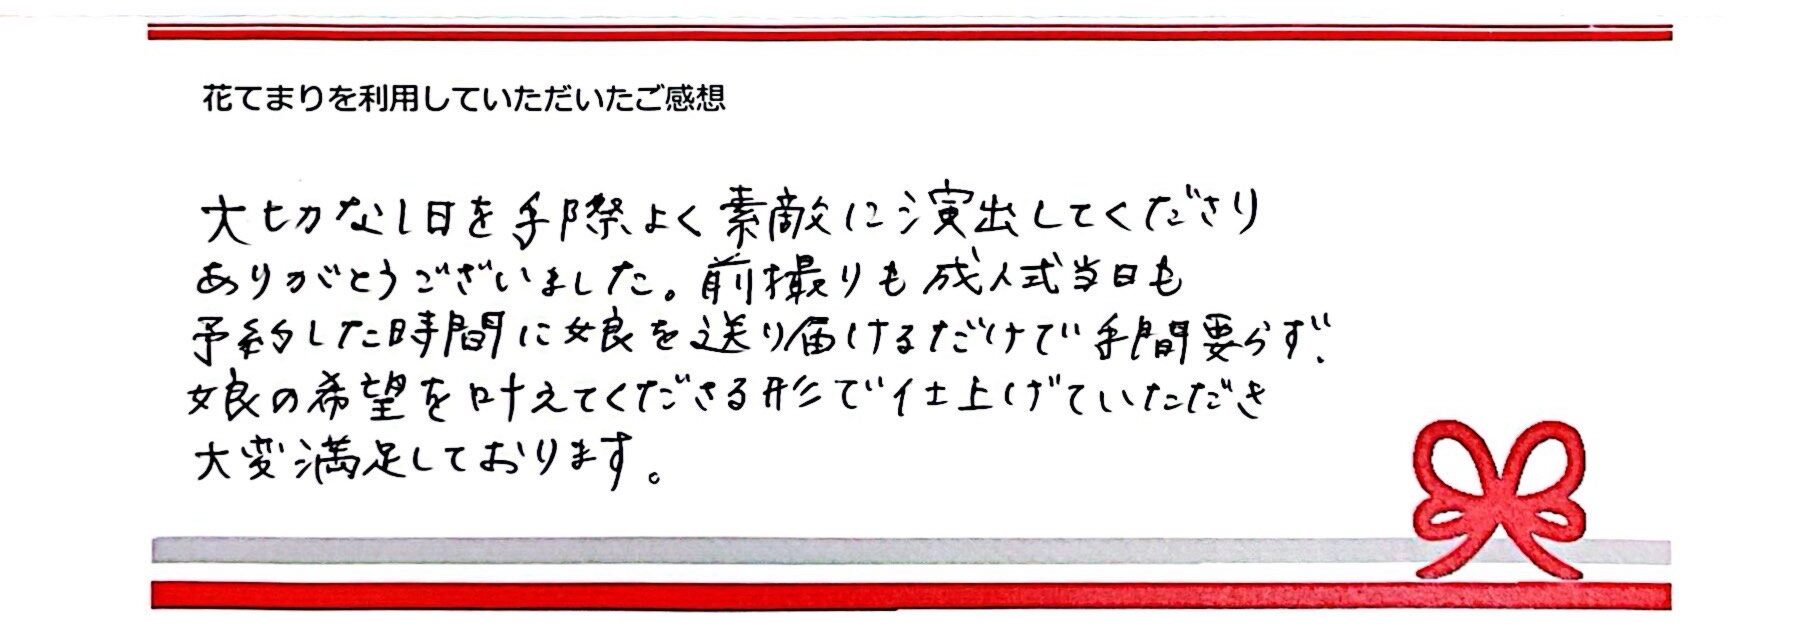 花てまりを利用していただいたご感想
大切な1日を手際よく素敵に演出してくださり
ありがとうございました。前撮りも成人式当日も
予約した時間に娘を送り届けるだけで手間要らず、
娘の希望を叶えてくださる形で仕上げていただき
大変満足しております。